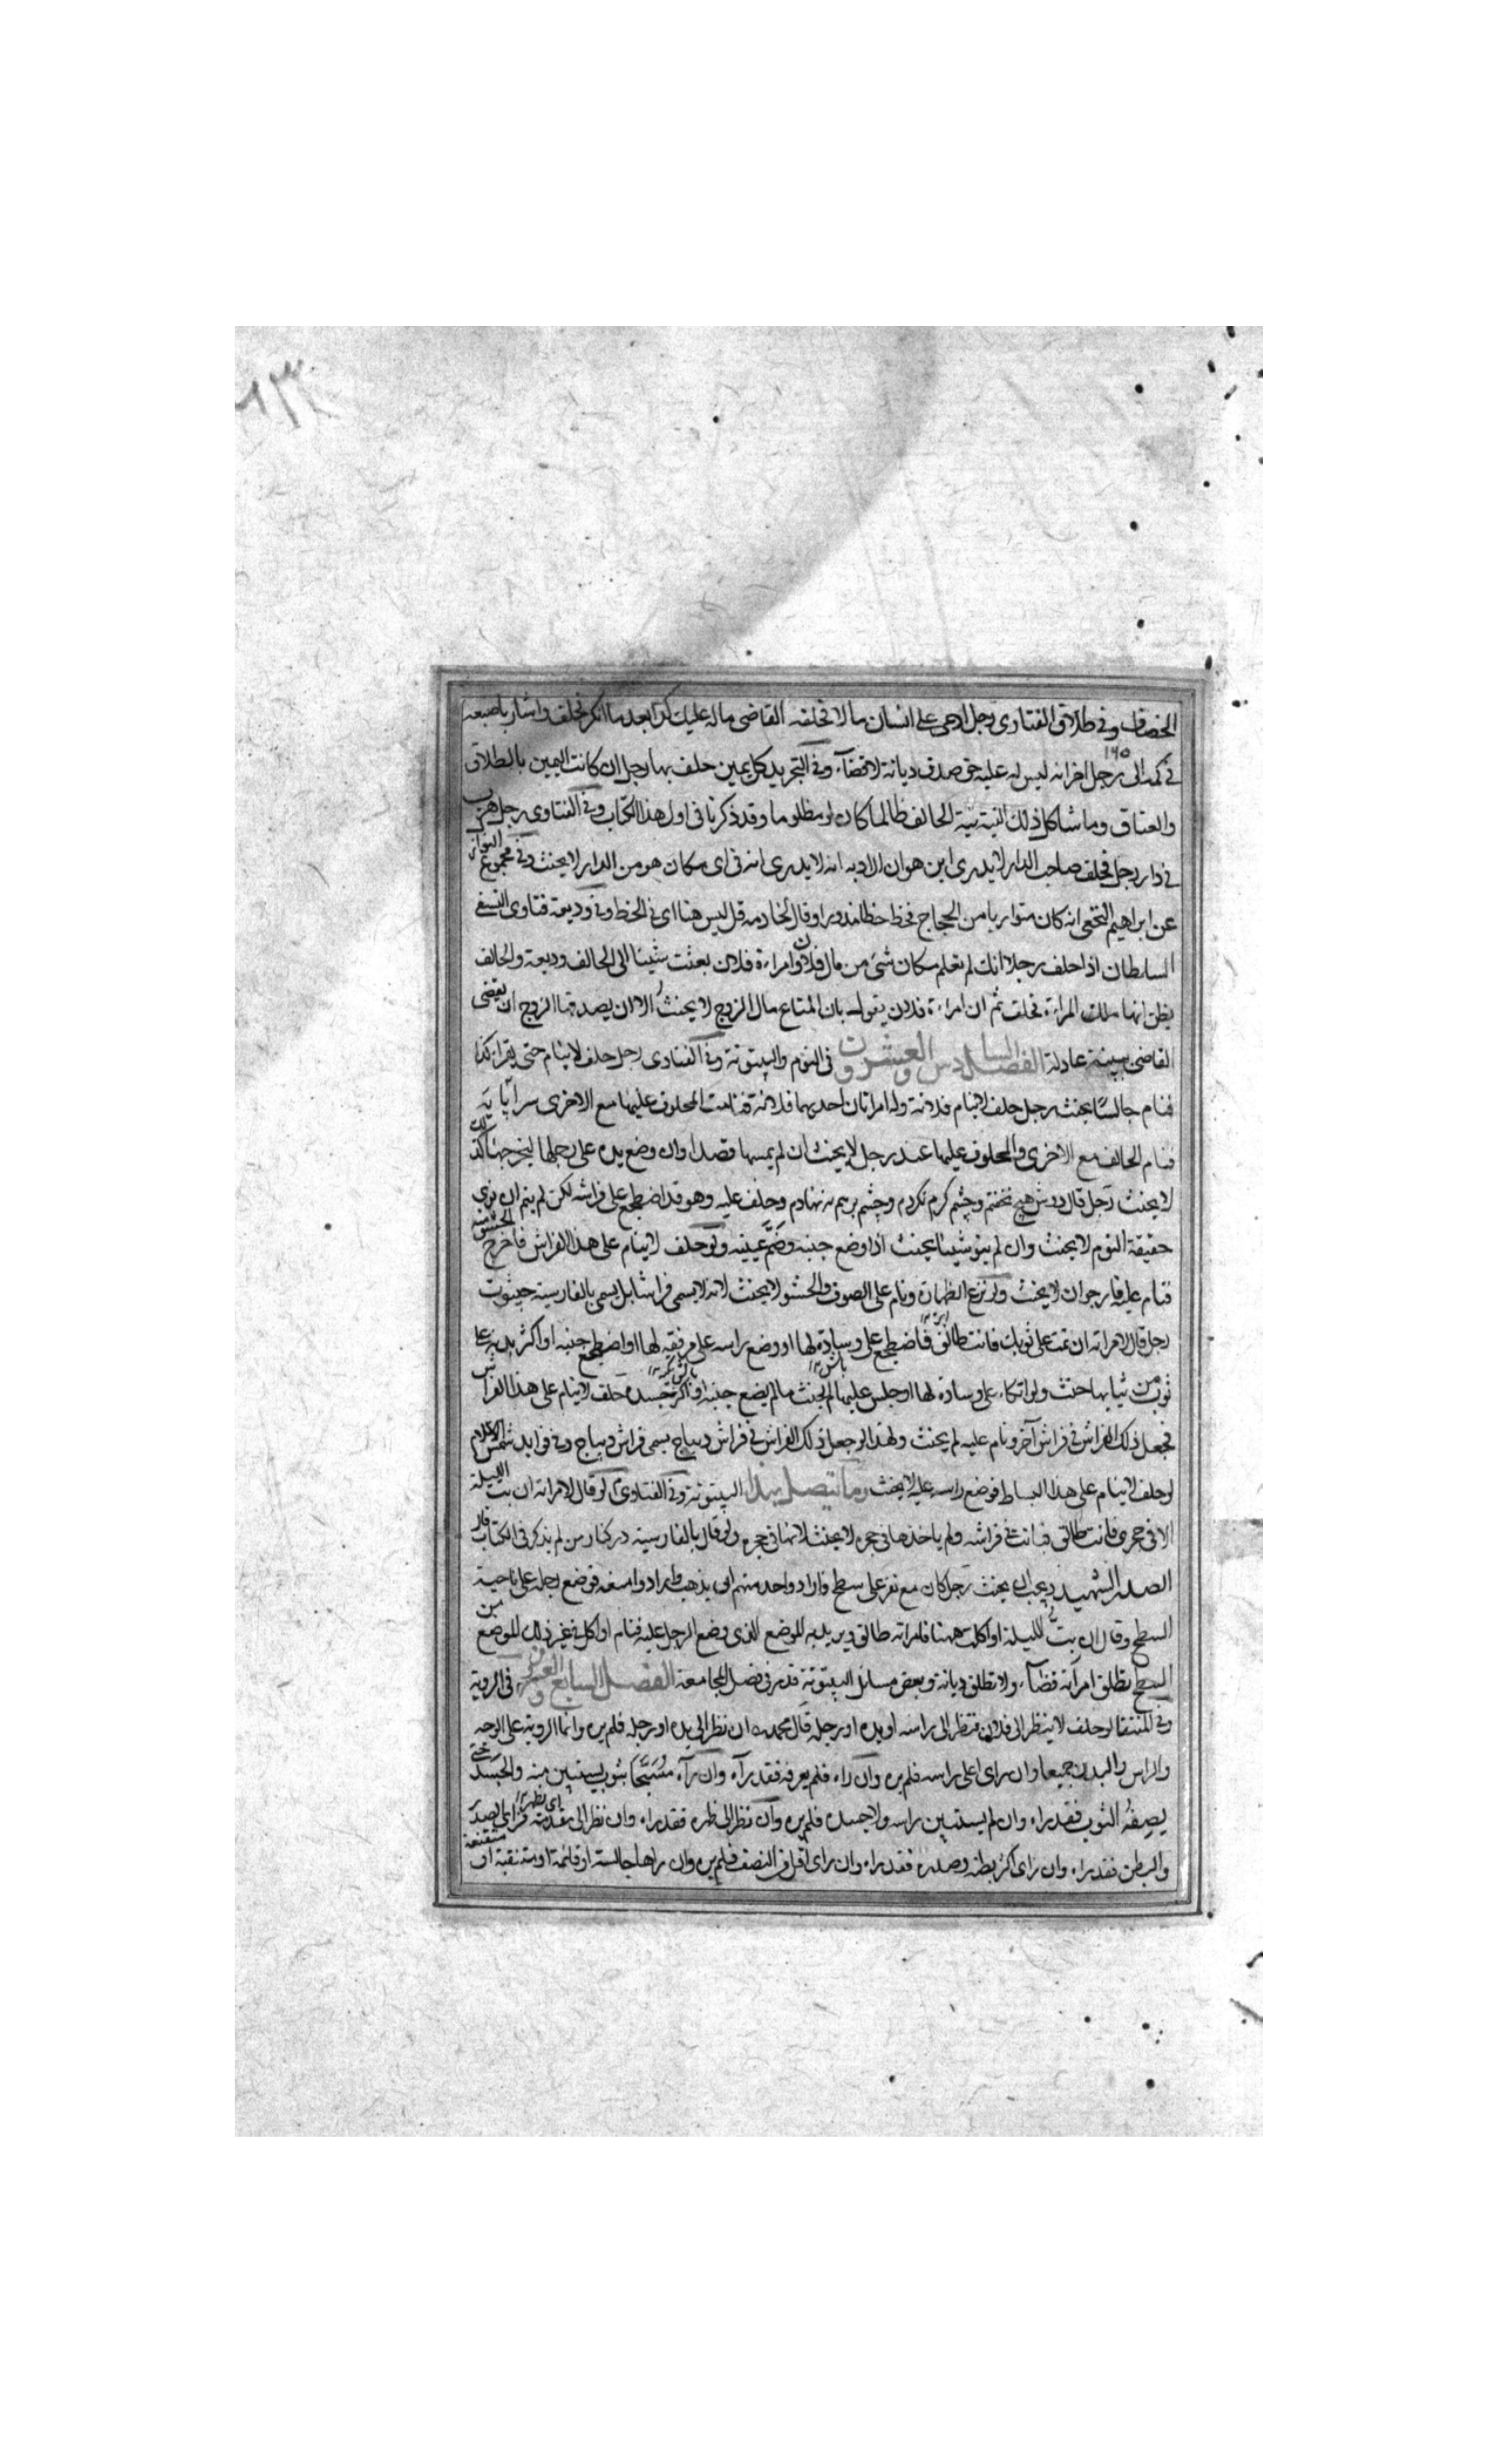 الخصاف وفي طلاق الفتاوى رجل ادعى على انسان مالا فحلفه القاضي ماله عليك كذا بعد ما انكر فحلف واشار باصبعه
في كمه الى رجل اخر انه ليس له عليه حق صدق ديانة لا قضآء وفي التجريد كل يمين حلف بها رجل ان كانت اليمين بالطلاق
والعتاق وما شاكل ذلك النية نية الحالف ظالما كان او مظلوما وقد ذكرنا في اول هذا الكتاب وفي الفتاوى رجل هرب
في دار رجل فحلف صاحب الدار لا يدرى اين هو ان اراد به انه لا يدرى انه في اى مكان هو من الدار لا يحنث وفي مجموع النوازل
عن ابراهيم النخعى انه كان متواريا من الحجاج فخط خطا مدورا وقال لخادمه قل ليس هنا اى في الخط وفي وديعة فتاوى النسفي
السلطان اذا حلف رجلا انك لم تعلم مكان شئ من مال فلان وامراءة فلان بعثت شيئا الى الحالف وديعة والحالف
يظن انها ملك المراءة فحلف ثم ان امراءة فلان يقول بان المتاع مال الزوج لا يحنث الا ان يصدقها الزوج او يقضى
القاضى ببينة عادلة الفصل السادس والعشرون في النوم والبيتوتة وفي الفتاوى رجل حلف لا ينام حتى يقرا كذا
فنام جالسًا يحنث رجل حلف لا ينام فلانة وله امراتان احديهما فلانة فنامت المحلوف عليها مع الاخرى
فنام الحالف مع الاخرى والمحلوف عليها عند رجل لا يحنث ان لم يمسها قصدا وان وضع يده على رجلها
لا يحنث رجل قال دوش هيچ نخفتم وچشم كرم نكردم وچشم برهم ننهادم وحلف عليه وهو قد اضطجع على فراشه لكن لم ينم ان نوى
حقيقة النوم لا يحنث وان لم ينو شيئا يحنث اذا وضع جنبه وضمّ عينيه ولو حلف لا ينام على هذا الفراش فاخرج الحشو منه
فنام عليه فارجو ان لا يحنث ولو نزع الظهارة ونام على الصوف والحشو لا يحنث لانه لا يسمى فراشا بل يسمى بالفارسية
رجل قال لامراته ان نمت على ثوبك فانت طالق فاضطجع على وسادة لها او وضع راسه على مرفقه لها او اضطجع جنبه او اكثر بدنه على
ثوب من ثيابها حنث ولو اتكاء على وسادة لها او جلس عليها لم يحنث مالم يضع جنبه او اكثر جسده حلف لا ينام على هذا الفراش
فجعل ذلك الفراش في فراش آخر ونام عليه لم يحنث ولهذا لو جعل ذلك الفراش في فراش ديباج يسمى فراش ديباج وفي فوايد شمس الاسلام
لو حلف لا ينام على هذا البساط فوضع راسه عليه لا يحنث ومما يتصل بهذا البيتوتة وفي الفتاوى لو قال لامراته ان بت الليلة
الا في حجرى فانت طالق فباتت في فراشه ولم ياخذها في حجره لا يحنث لانها في حجره ولو قال بالفارسية در كنار من لم يذكر في الكتاب قال
الصدر الشهيد ويجب ان يحنث رجل كان مع نفر على سطح واراد واحد منهم ان يذهب وارادوا منعه فوضع رجله على ناحية
السطح وقال ان بت الليلة او اكلت ههنا فامراته طالق ويريد به الموضع الذى وضع الرجل عليه فنام او اكل في غير ذلك الموضع من
السطح تطلق امرآته قضآء ولا تطلق ديانة وبعض مسائل البيتوتة قد مر في فصل المجامعة الفصل السابع والعشرون في الروية
وفي المنتقا لو حلف لا ينظر الى فلان فنظر الى راسه او يده او رجله قال محمد ان نظر الى يده او رجله فلم يره وانما الروية على الوجه
والراس والبدن جميعا وان راى اعلى راسه فلم يره وان راه فلم يعرفه فقد رآه وان رآه مسجّى بثوب يستبين منه والجسد
يصفه الثوب فقد راه وان لم يستبين راسه ولا جسده فلم يره وان نظر الى ظهره فقد راه وان نظر الى مقدمته فراى الصدر
والبطن فقد راه وان راى اكثر بطنه وصدره فقد راه وان راى اقل من النصف فلم يره وان راها جالسة او قائمة او متنقبة او متقنعة